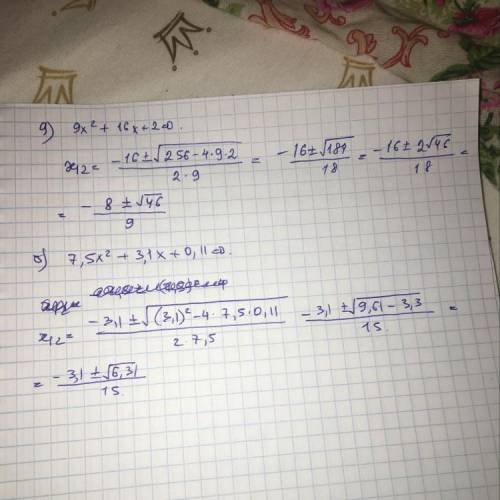 g) 9x² + 16x + 2 = 0.
x₁₂ = (-16 ± √(256 - 4·9·2)) / (2·9) = (-16 ± √184) / 18 = (-16 ± 2√46) / 18 =
= (-8 ± √46) / 9
б) 7,5x² + 3,1x + 0,11 = 0.
x₁₂ = (-3,1 ± √((3,1)² - 4·7,5·0,11)) / (2 7,5) (-3,1 ± √(9,61 - 3,3)) / 15 =
= (-3,1 ± √6,31) / 15.